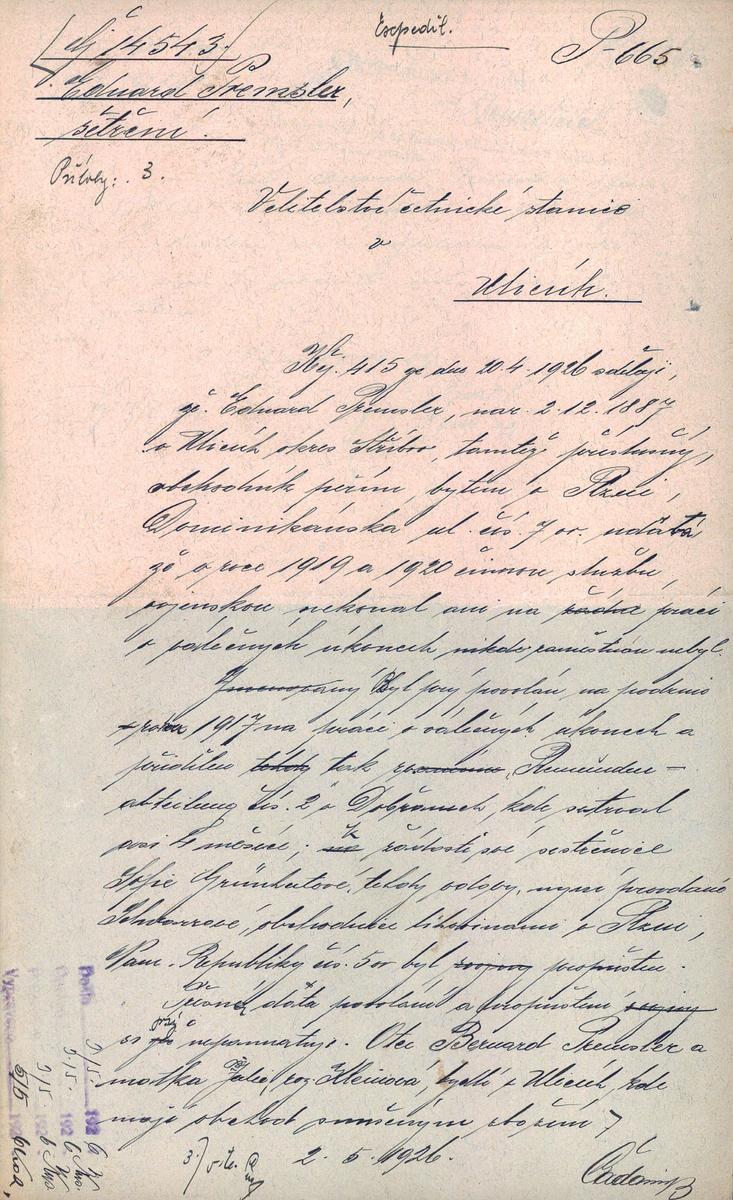 čj 14543.
Expedit.
P-665
Eduard Premsler,
šetření.
Přílohy: 3.
Velitelství četnické stanice
v
Ulicích.
K čj. 415 ze dne 20.4.1926 sděluji,
že Eduard Premsler, nar. 2.12.1887
v Ulicích okres Stříbro, tamtéž příslušný,
obchodník peřím, bytem v Plzni,
Dominikánska ul. čís. 7 or. udává
že v roce 1919 a 1920 činnou službu
vojenskou nekonal ani na žádné práci
o válečných úkonech nikde zaměstnán nebyl.
Jmenovaný Byl prý povolán na podzim
roku 1917 na práci o válečných úkonech a
přidělen tehdy tak zvanému
abteilung čís. 2 v Dobřanech, kde setrval
asi 4 měsíce; K žádosti své sestřenice
Sofie Grünhutové, tehdy vdovy, nyní provdané
Schwarzové, obchodnice lihovinami v Plzni,
Nám. Republiky čís. 5 or byl propuštěn.
Přesné dáta povolání a propuštění
si prý nepamatuje. Otec Bernard Premsler a
matka Julie, roz. Kleinová, bydlí v Ulicích, kde
mají obchod smíšeným zbožím
2.5.1926.
Došlo 5/5. 1926
9/5. 1926
9/5. 192 6
5/5